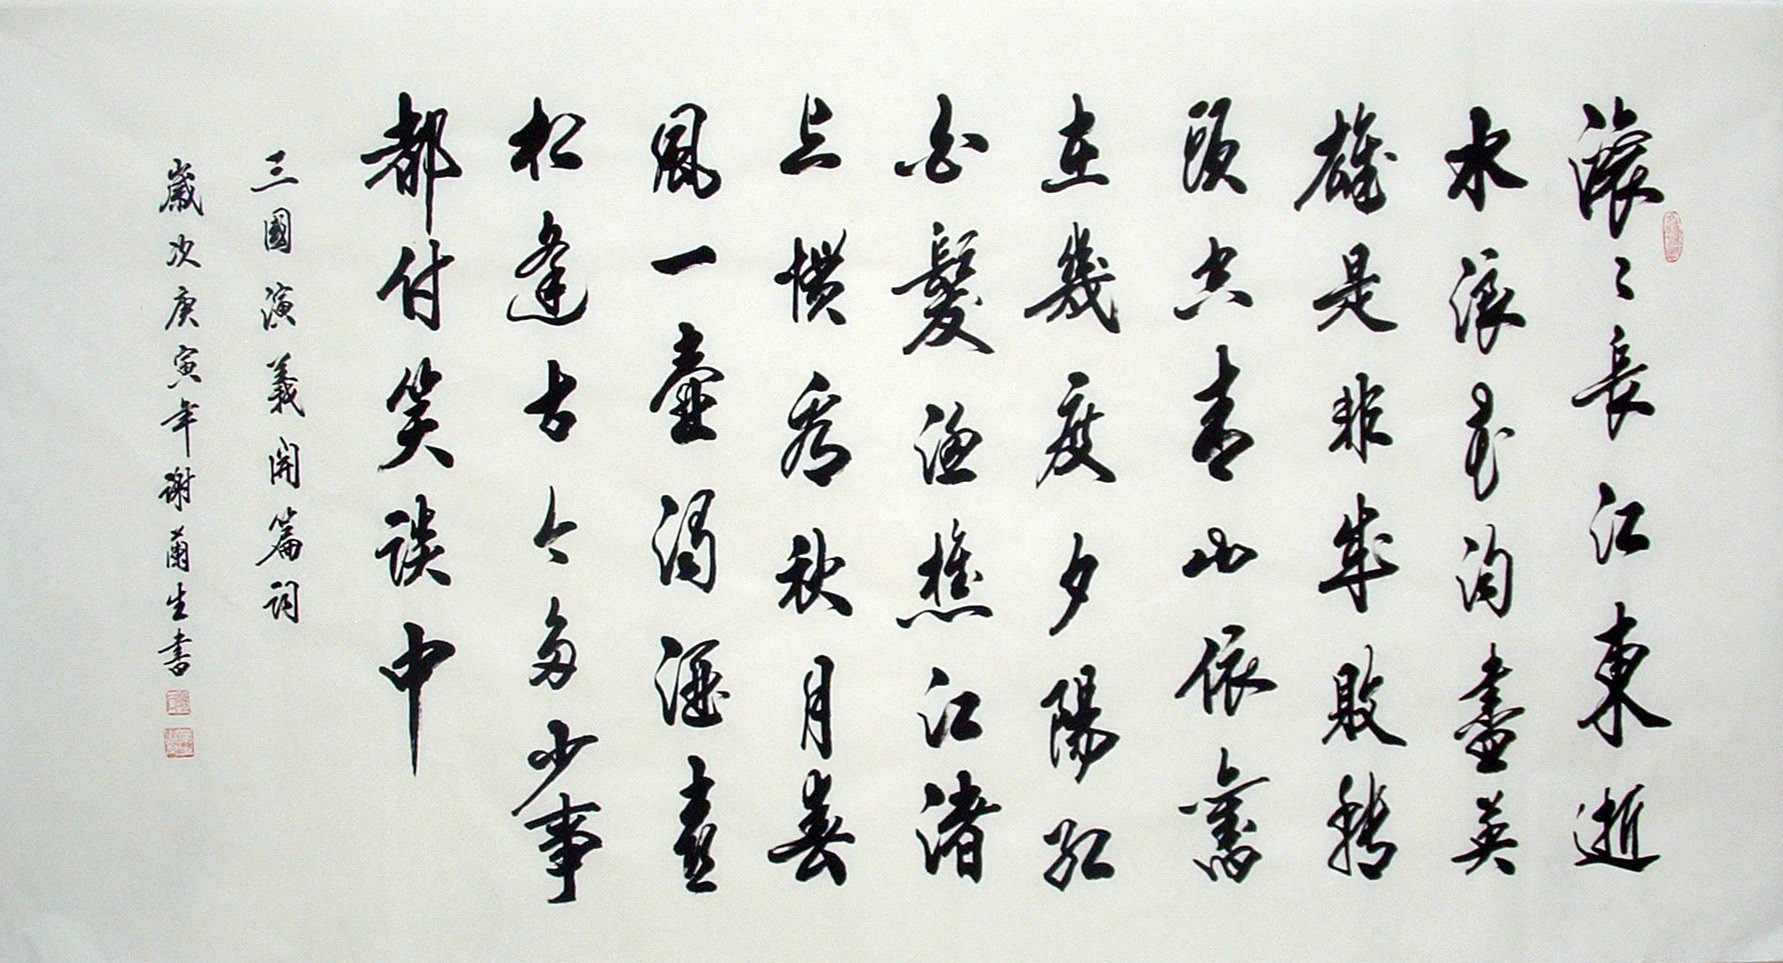 滚々長江東逝
水浪花淘盡英
雄是非成敗轉
頭空青山依舊
在幾度夕陽紅
白髮漁樵江渚
上慣看秋月春
風一壺濁酒喜
相逢古今多少事
都付笑談中
三國演義開篇詞
歲次庚寅年谢蘭生書